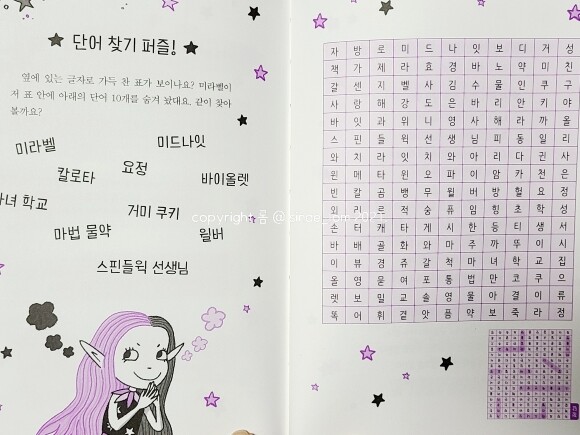 단어 찾기 퍼즐!
옆에 있는 글자로 가득 찬 표가 보이나요? 미라벨이
저 표 안에 아래의 단어 10개를 숨겨 놨대요. 같이 찾아
볼까요?
미라벨
미드나잇
칼로타
요정
바이올렛
녀 학교
거미 쿠키
마법 물약
윌버
스핀들윅 선생님
자 방 로 미 드 나 잇 보 디 거 성
책 가 제 라 효 경 바 노 약 미 친
갈 센 지 벨 사 김 수 물 인 쿠 구
사 랑 해 강 도 은 바 리 안 키 야
바 잇 과 위 니 영 사 해 라 까 올
스 핀 들 윅 선 생 님 피 동 일 리
와 치 라 잇 치 와 아 리 다 긴 사
윈 메 타 윈 오 파 이 암 카 천 은
빈 칼 곰 뱅 무 윌 버 방 헐 요 정
외 리 로 적 숭 퓨 임 힘 초 학 성
손 터 캐 타 게 시 한 등 티 생 서
바 배 골 화 와 마 주 까 뚜 이 시
이 뷰 경 쥬 갈 척 마 녀 학 교 집
올 영 묻 여 포 통 법 만 코 쿠 으
렛 보 밀 교 솔 영 물 아 결 이 류
똑 어 휘 곁 앗 플 약 보 죽 라 정